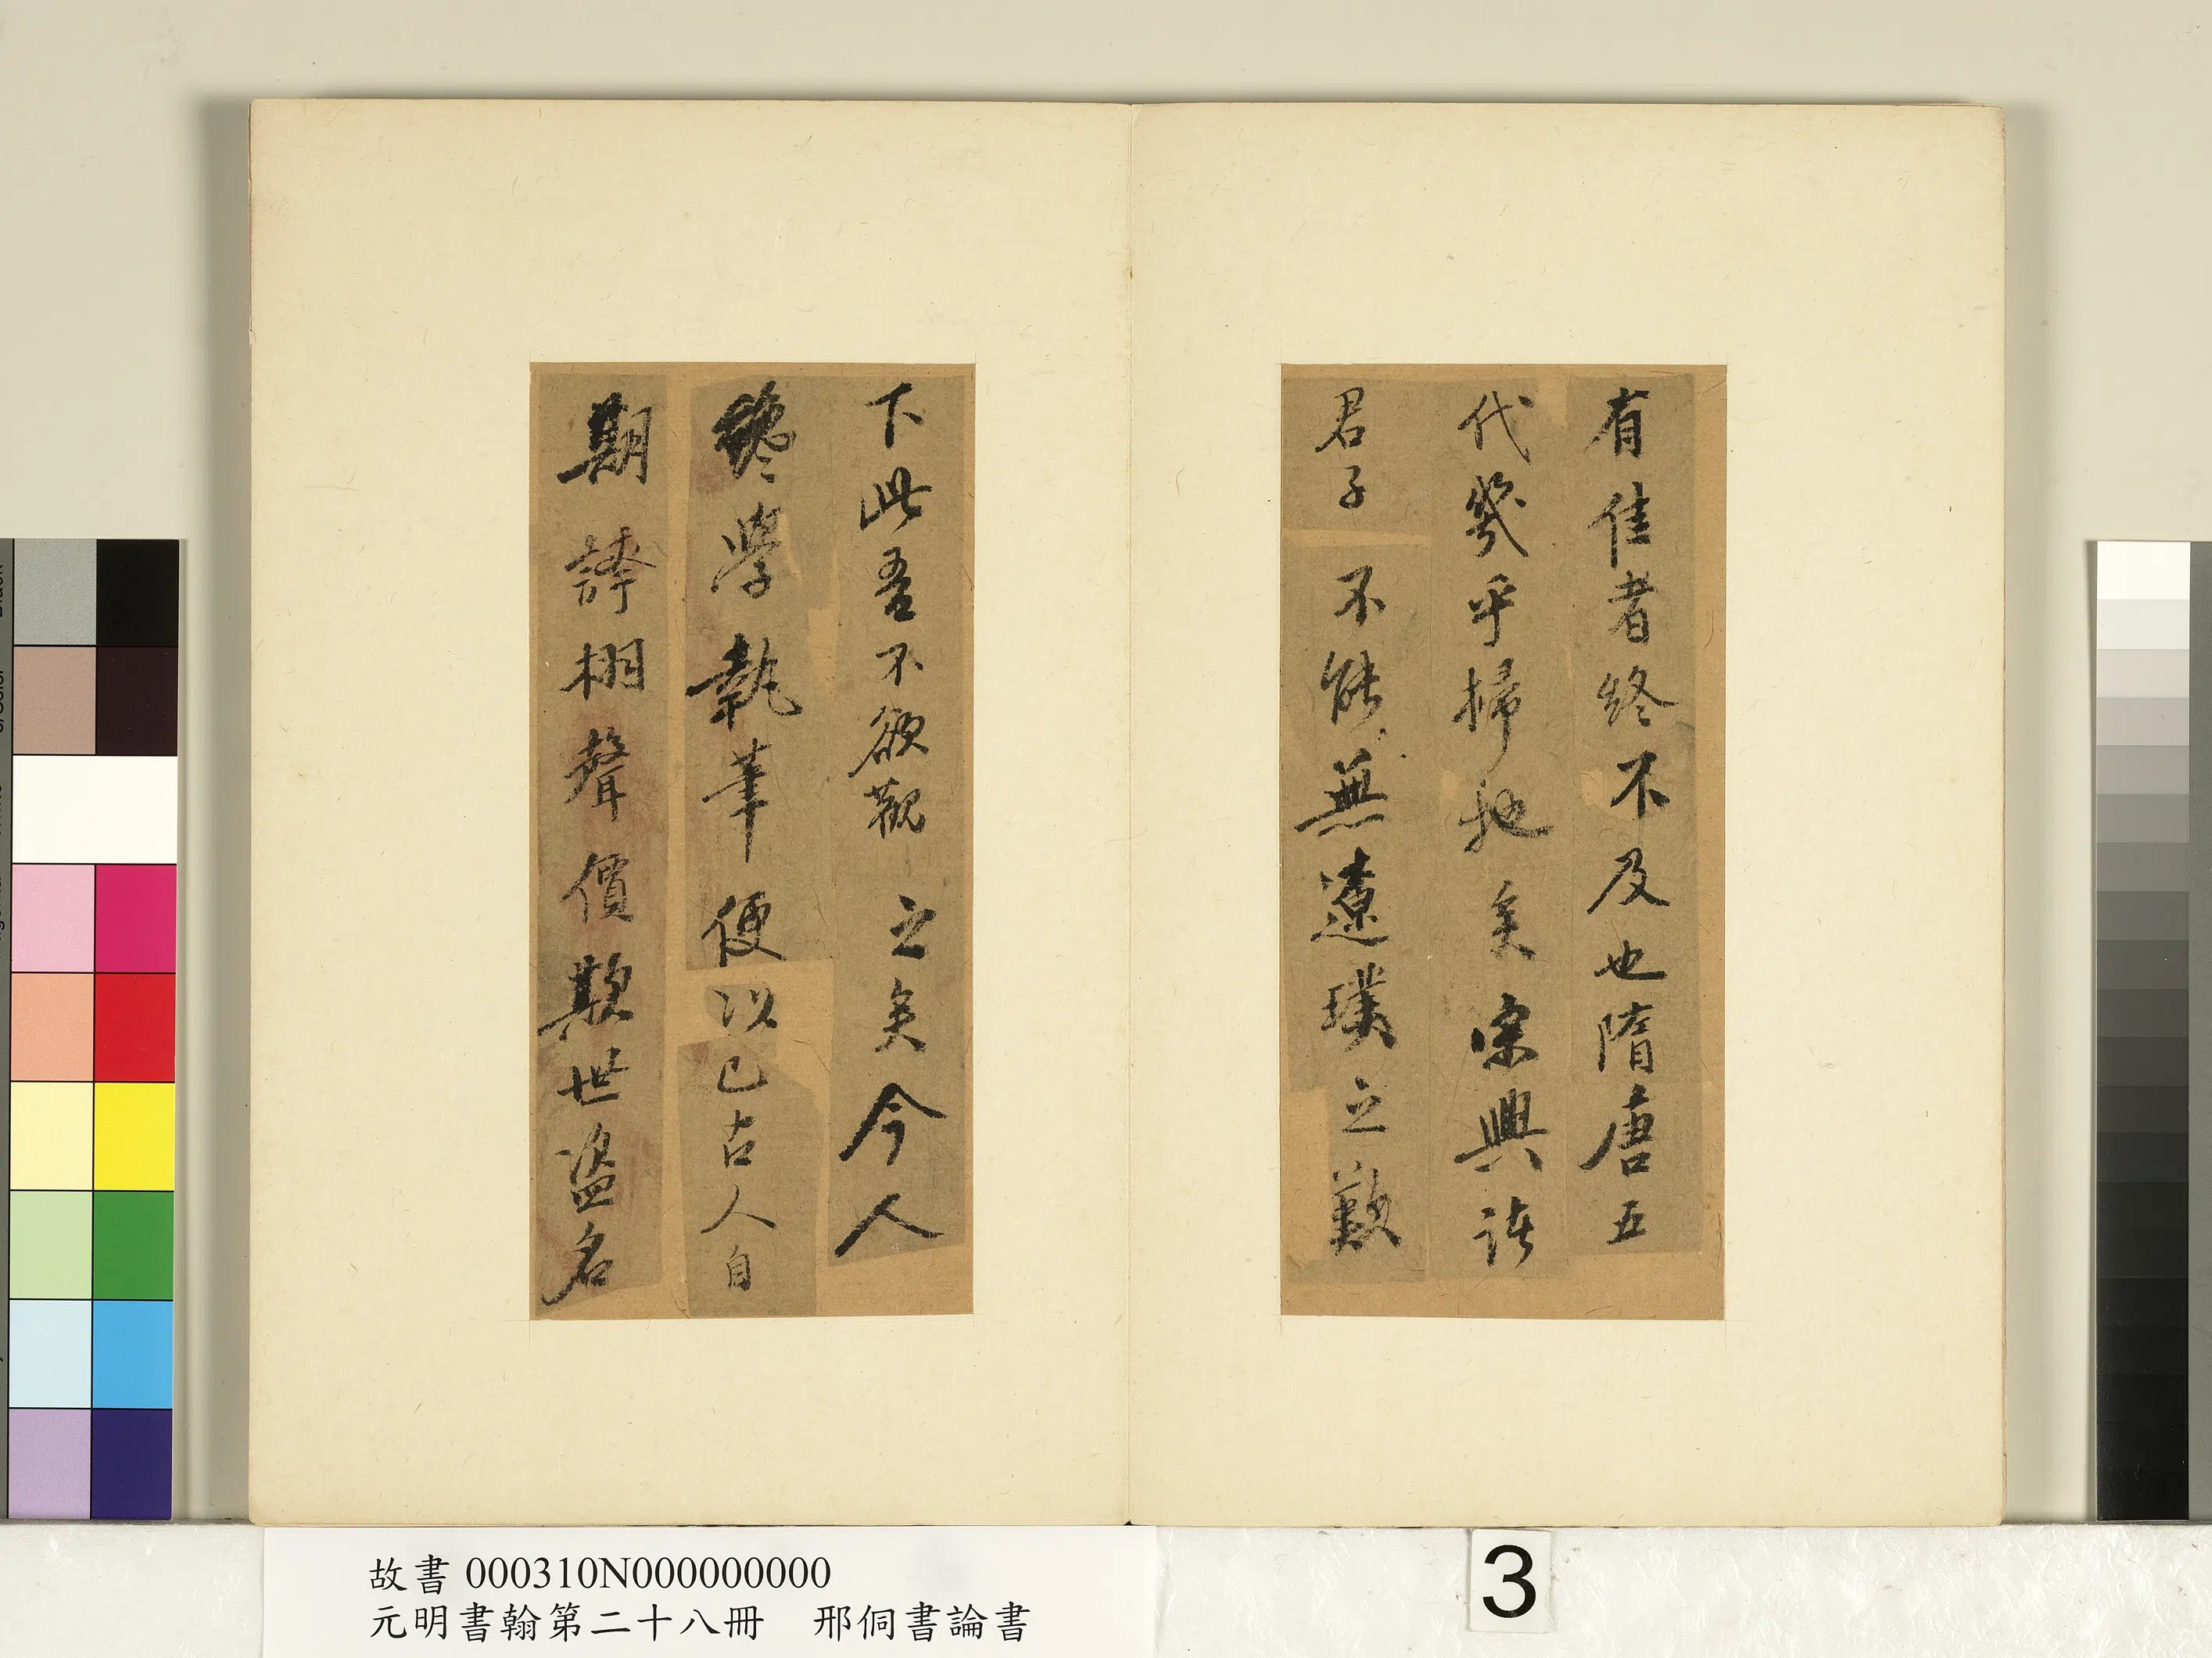 有佳者終不及也隋唐五
代幾乎掃地矣宋興諸
君子不能無遼璞之歎
下此吾不欲觀之矣今人
纔學執筆便以己古人自
期誇栩聲價欺世盜名
故書000310N000000000
元明書翰第二十八冊 邢侗書論書
3